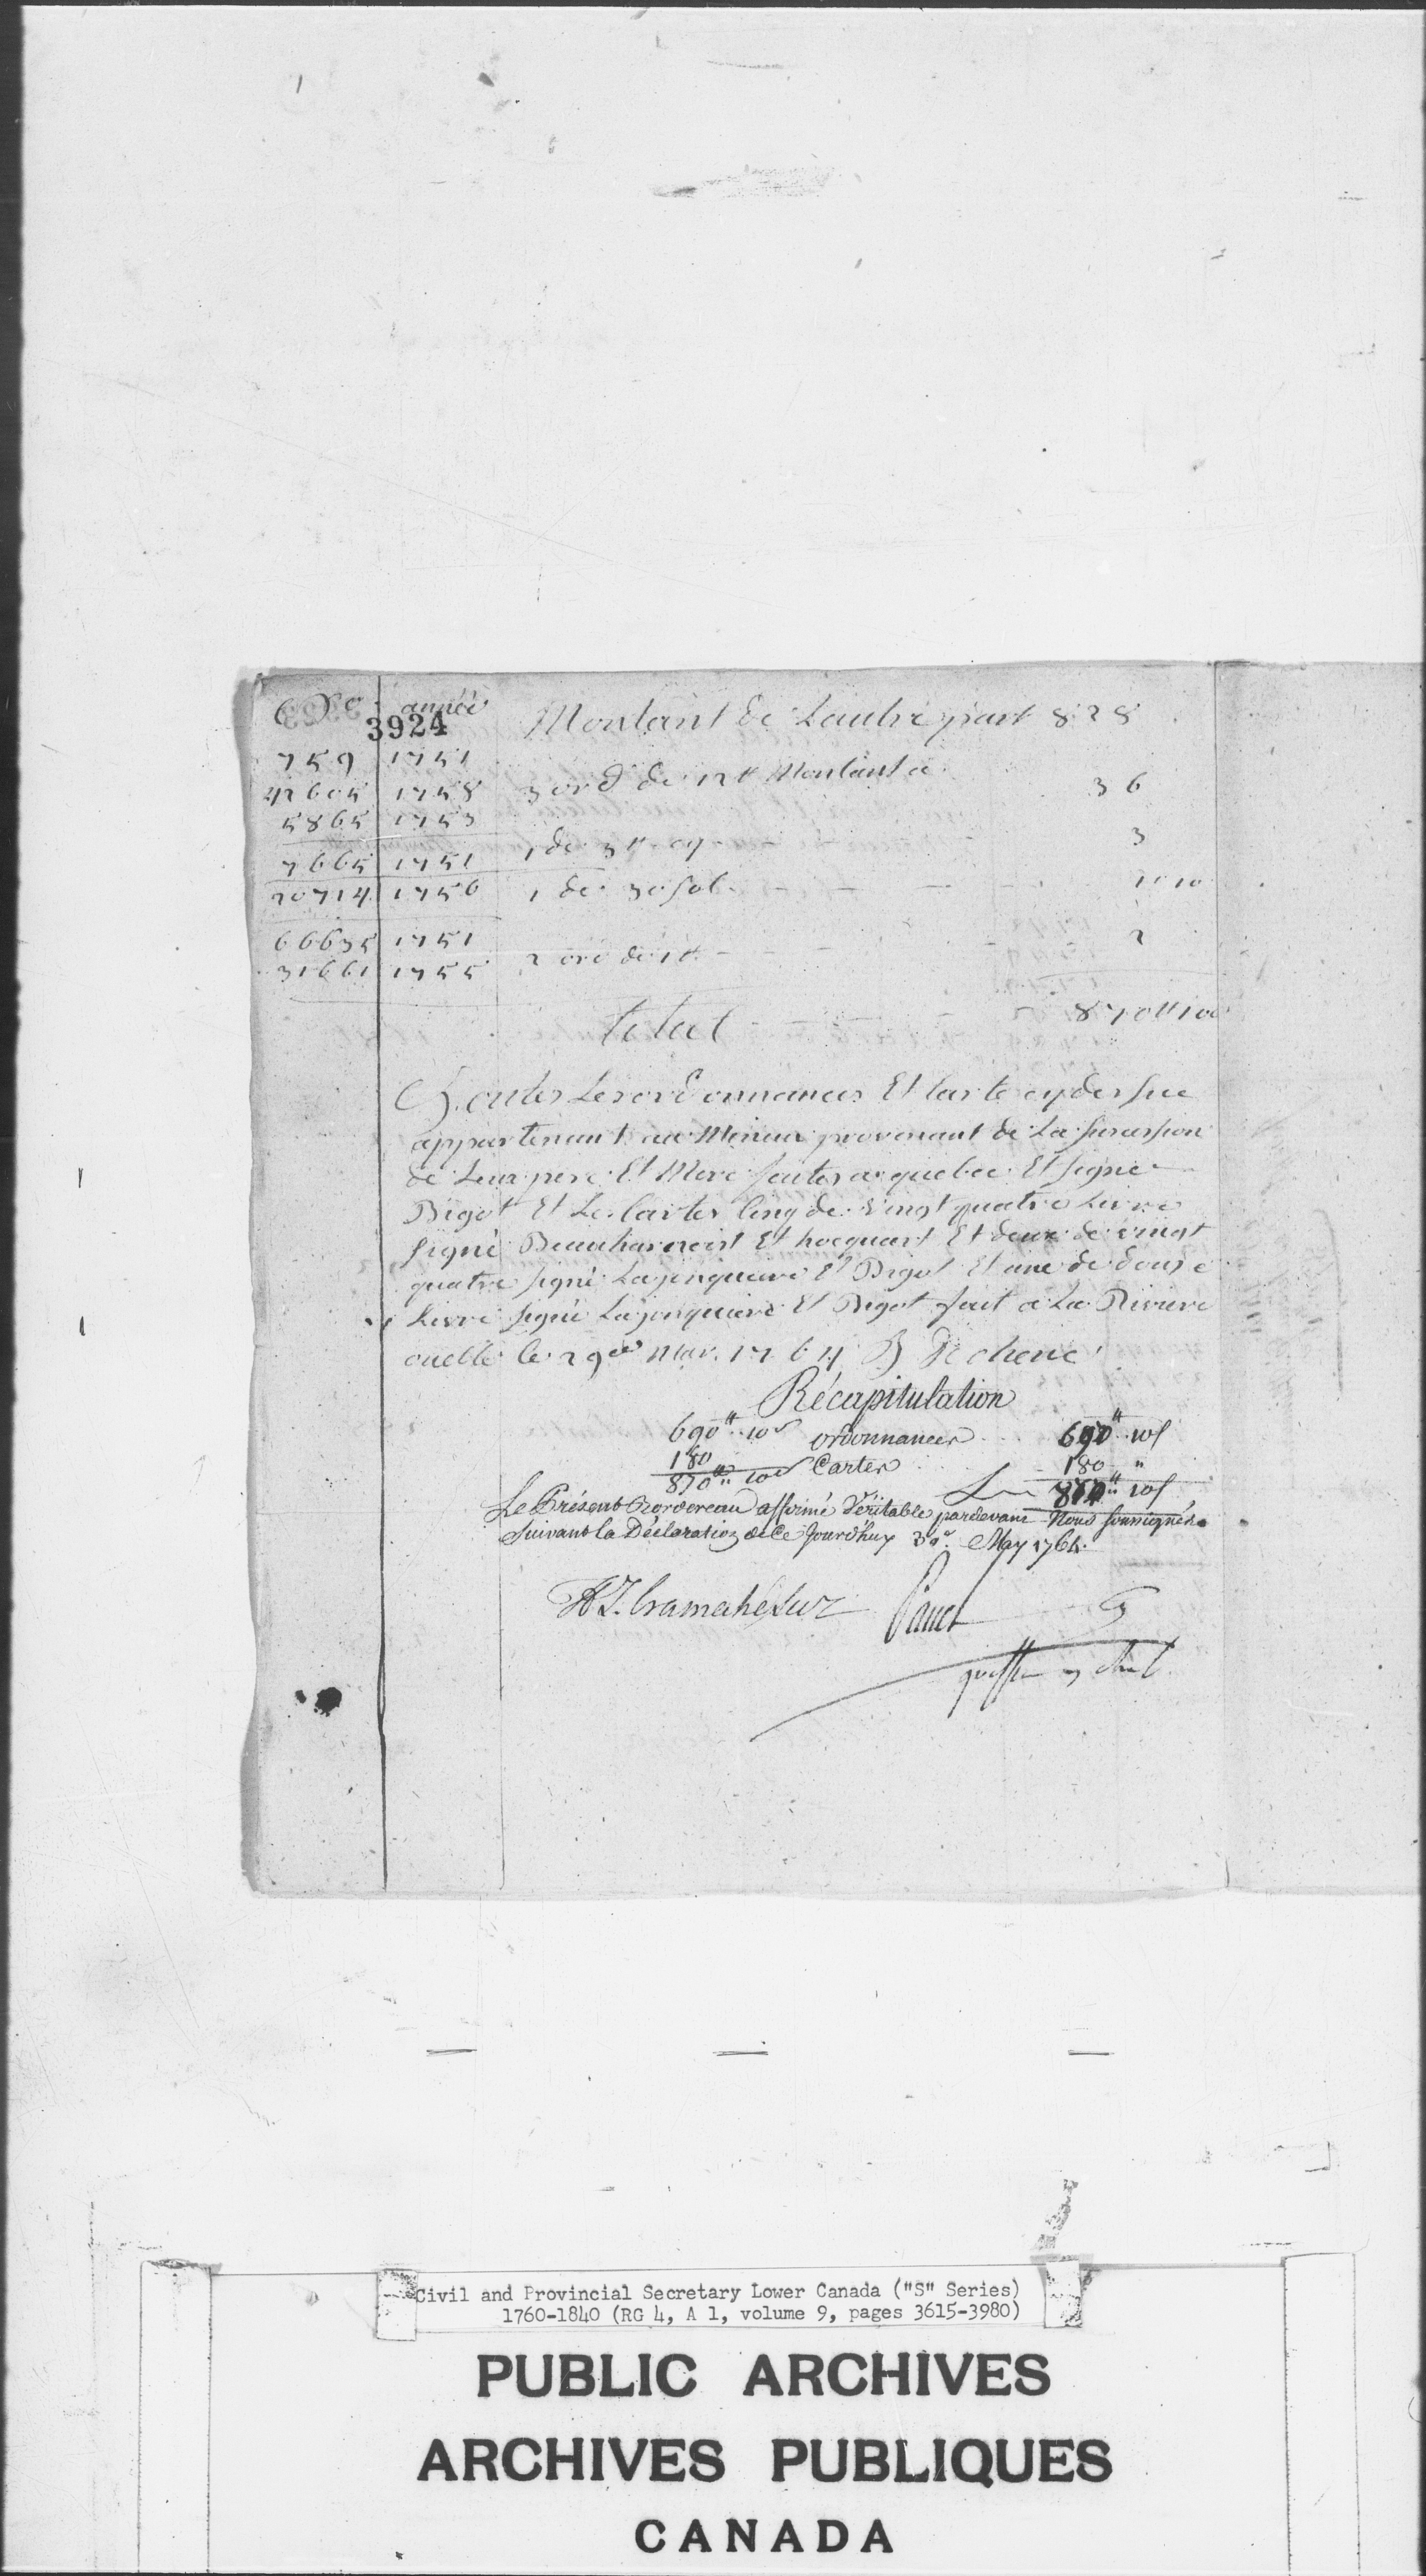 No année
3924
Montant de Lautre part 828
759 1751
42605 1758 3 ord de 12# Montant a 36
5865 1753
7665 1751 1 de 3# 3
20714 1756 1 de 30 sol 1# 10
66635 1751
31661 1755 2 ord de 1# 2
total 870# 10
toutes Les ordonnances Et Carte cy dessue
appartenant au Mineur provenant de La sucession
de Leur pere Et Mere faites a quebec Et signe
Bigot Et Le Cartes Cinq de vingt quatre Livre
signé Beauharnoist Et hocquart Et deux de vingt
quatre signé Lajonquiere Et Bigot Et une de douse
Livre signé Lajonquiere Et Bigot fait a La Riviere
ouelle le 29 may 1764 Dechene
Récapitulation
690# 10s ordonnances 690# 10s
180 Cartes 180 "
870# 10s 870# 10s
Le Présent Bordereau affirmé Véritable pardevant Nous soussignés
Suivant la Déclaration de Ce Jourd'huy 30e May 1764.
H T. Cramahé Panet
Civil and Provincial Secretary Lower Canada ("S" Series)
1760-1840 (RG 4, A 1, volume 9, pages 3615-3980)
PUBLIC ARCHIVES
ARCHIVES PUBLIQUES
CANADA